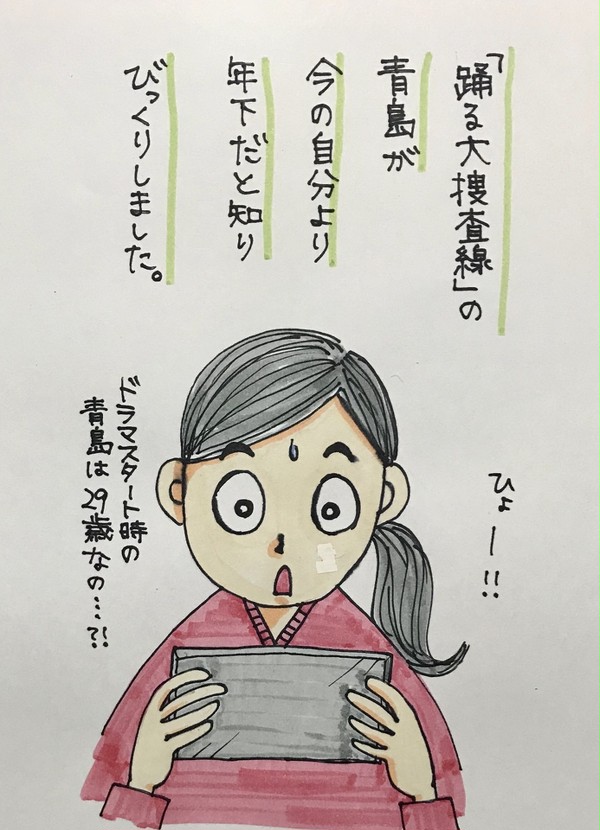 「踊る大捜査線」の
青島が
今の自分より
年下だと知り
びっくりしました。
ひょー!!
ドラマスタート時の
青島は29歳なの…?!